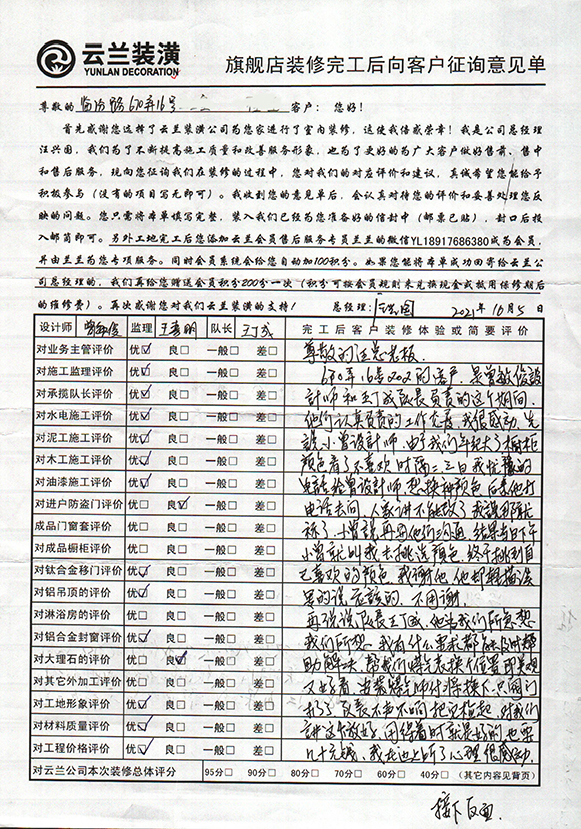 云兰装潢
YUNLAN DECORATION
旗舰店装修完工后向客户征询意见单
尊敬的 临汾路670弄16号 客户： 您好！
首先感谢您选择了云兰装潢公司为您家进行了室内装修，这使我倍感荣幸！我是公司总经理
汪兴国，我们为了不断提高施工质量和改善服务形象，也为了更好的为广大客户做好售前、售中
和售后服务，现向您征询我们在装修的过程中，您对我们的对应评价和建议，真诚希望您能给予
积极参与（没有的项目写无即可）。我收到您的意见单后，会认真对待您的评价和妥善处理您反
映的问题。您只需将本单填写完整，装入我们已经为您准备好的信封中（邮票已贴），封口后投
入邮筒即可。另外工地完工后您添加云兰会员售后服务专员兰兰的微信YL18917686380成为会员，
并由兰兰为您专项服务。同时会员系统会给您自动加100积分。如果您能将本单成功回寄给云兰公
司总经理的，我们再给您赠送会员积分200分一次（积分可按会员规则来兑换现金或抵用保修期后
的维修费）。再次感谢您对我们云兰装潢的支持！ 总经理： 2021年10月5日
设计师 曾敏俊 监理 队长 王丁成 完工后客户装修体验或简要评价
对业务主管评价 优☑ 良□ 一般□ 差□ 尊敬的汪总老板．
对施工监理评价 优☑ 良□ 一般□ 差□ 670弄16号202的客户，是曾敏俊设
对承揽队长评价 优☑ 良□ 一般□ 差□ 计师和王丁成队长负责的这个期间，
对水电施工评价 优☑ 良□ 一般□ 差□ 他们认真负责的工作态度，我很感动，先
对泥工施工评价 优☑ 良□ 一般□ 差□ 说小曾设计师，由于我们年纪大了橱柜
对木工施工评价 优☑ 良□ 一般□ 差□ 颜色看了不喜欢时隔二三日我犹豫的
对油漆施工评价 优☑ 良□ 一般□ 差□ 电话给曾设计师想换种颜色，后来他打
对进户防盗门评价 优□ 良☑ 一般□ 差□ 电话去问，人家讲不能改了我说那就
成品门窗套评价 优□ 良□ 一般□ 差□ 小曾说再同他们沟通，结果当日下午
对成品橱柜评价 优□ 良□ 一般□ 差□ 小曾就叫我去挑选颜色，终于挑到自
对钛合金移门评价 优☑ 良□ 一般□ 差□ 己喜欢的颜色，我谢他，他却轻描淡
对铝吊顶的评价 优☑ 良□ 一般□ 差□ 写的说应该的，不用谢．
对淋浴房的评价 优□ 良□ 一般□ 差□ 再强说队长王丁成，他为我们所急想
对铝合金封窗评价 优☑ 良□ 一般□ 差□ 我们所想，我有什么要求都能及时帮
对大理石的评价 优□ 良☑ 一般□ 差□ 助解决，帮我们煤气表换个位置，即美观
对其它外加工评价 优□ 良□ 一般□ 差□
对工地形象评价 优☑ 良□ 一般□ 差□ 队长不声不响把它捡起，对我们
对材料质量评价 优☑ 良□ 一般□ 差□ 讲这个很好，用得着时就是好的，也要
对工程价格评价 优☑ 良□ 一般□ 差□ 几十元钱，我在边上听了心里很感动．
对云兰公司本次装修总体评分 95分□ 90分□ 80分□ 70分□ 60分□ 40分□ （其它内容见背页）
接下反面